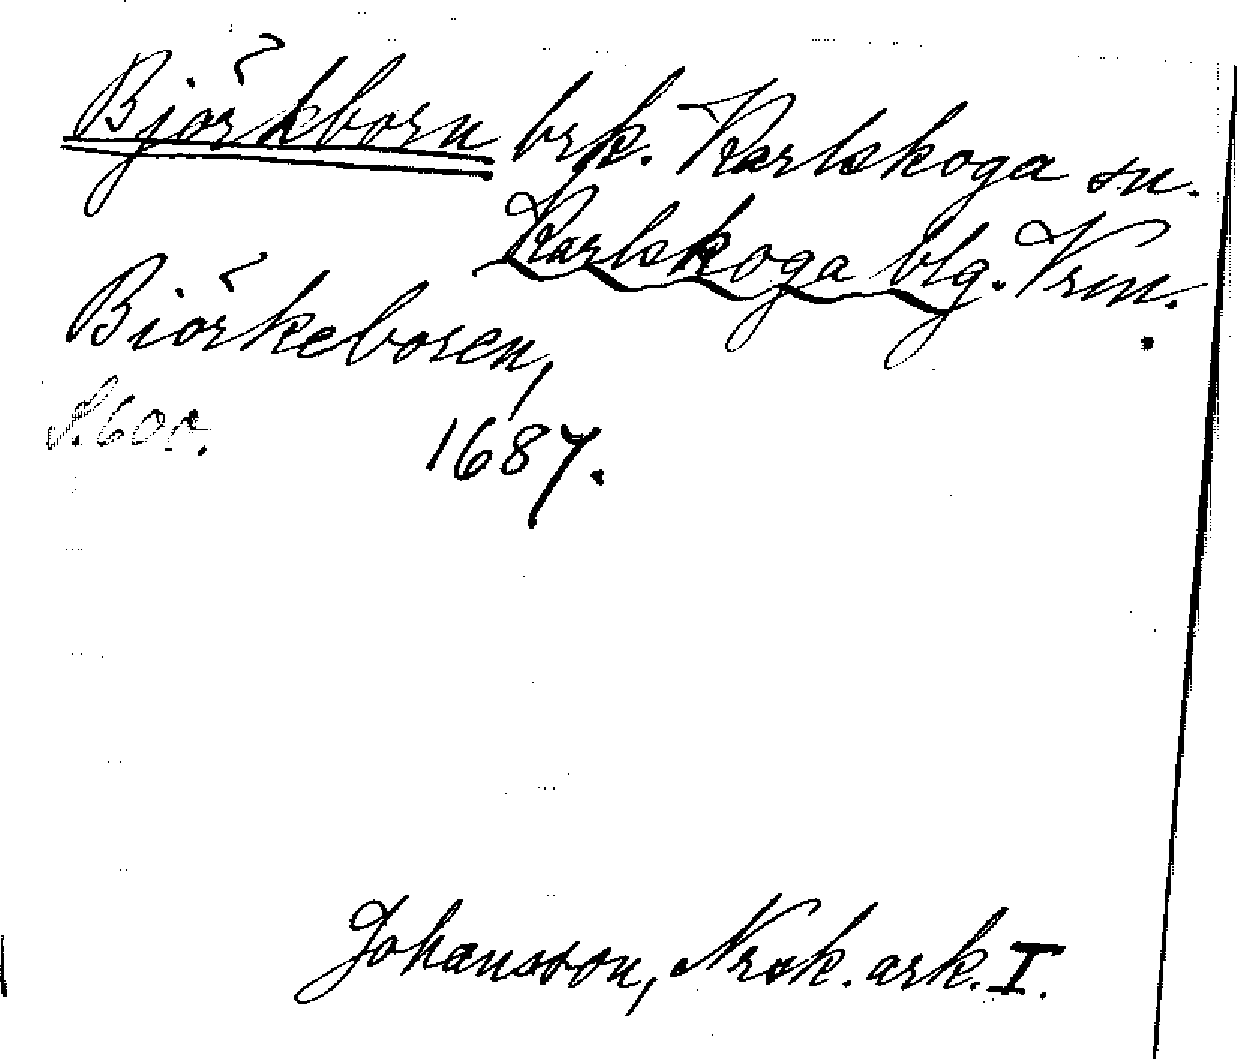 Björkborn brk. Karlskoga sn.
Karlskoga blg. Vrm.
Biörkeboren,
S. 600.
1687.
Johansson, Norsk. ark. I.